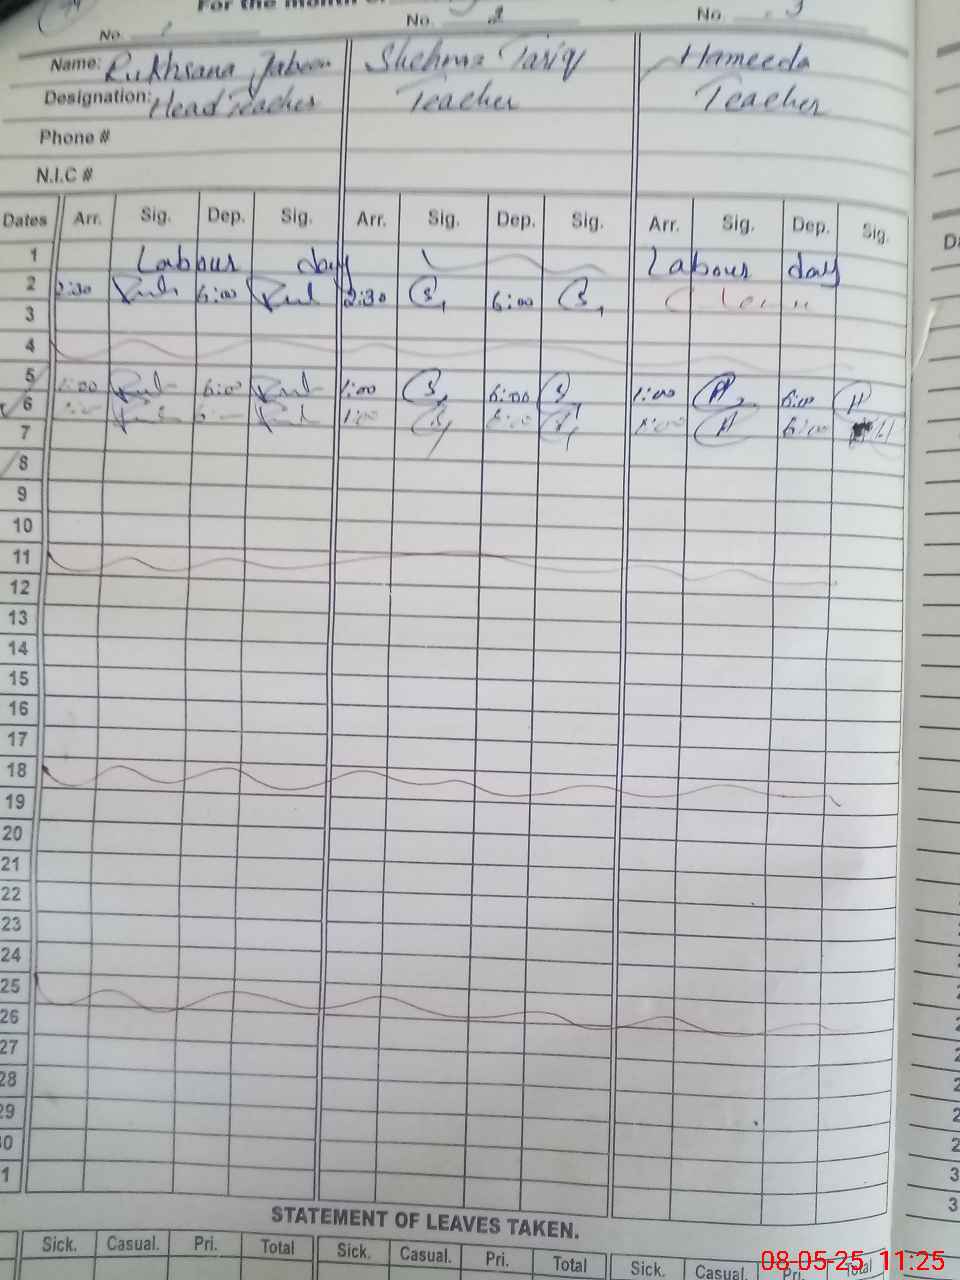 For the month of
No. 1 No. 2 No. 3
Name: Rukhsana Jabeen Shehma Tariq Hameeda
Designation: Head Teacher Teacher Teacher
Phone #
N.I.C #
Dates Arr. Sig. Dep. Sig. Arr. Sig. Dep. Sig. Arr. Sig. Dep. Sig.
1 Labour day Labour day
2 2:30 6:00 2:30 6:00
3
4
5 1:00 6:00 1:00 6:00 1:00 6:00
6 1:00 6:00
7
8
9
10
11
12
13
14
15
16
17
18
19
20
21
22
23
24
25
26
27
28
29
30
1
STATEMENT OF LEAVES TAKEN.
Sick. Casual. Pri. Total Sick. Casual. Pri. Total Sick. Casual. Pri. Total
08-05-25 11:25